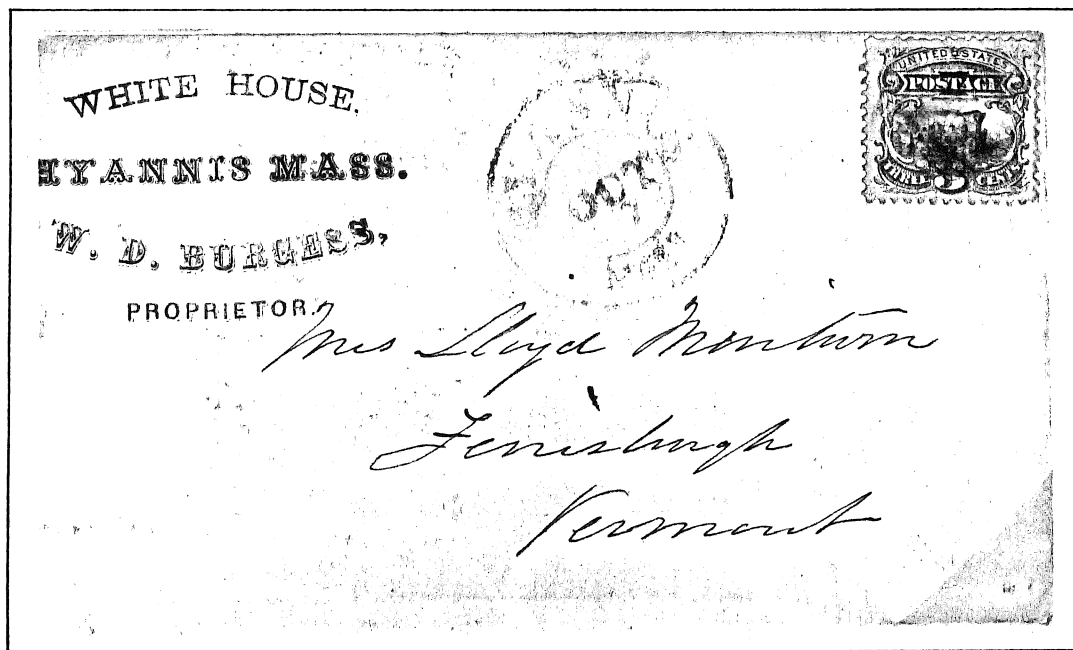 WHITE HOUSE.
HYANNIS MASS.
W. D. BURGESS,
PROPRIETOR.
OCT
UNITED STATES
POSTAGE
THREE 3 CENTS
Mrs Lloyd Minturn
Ferrisburgh
Vermont